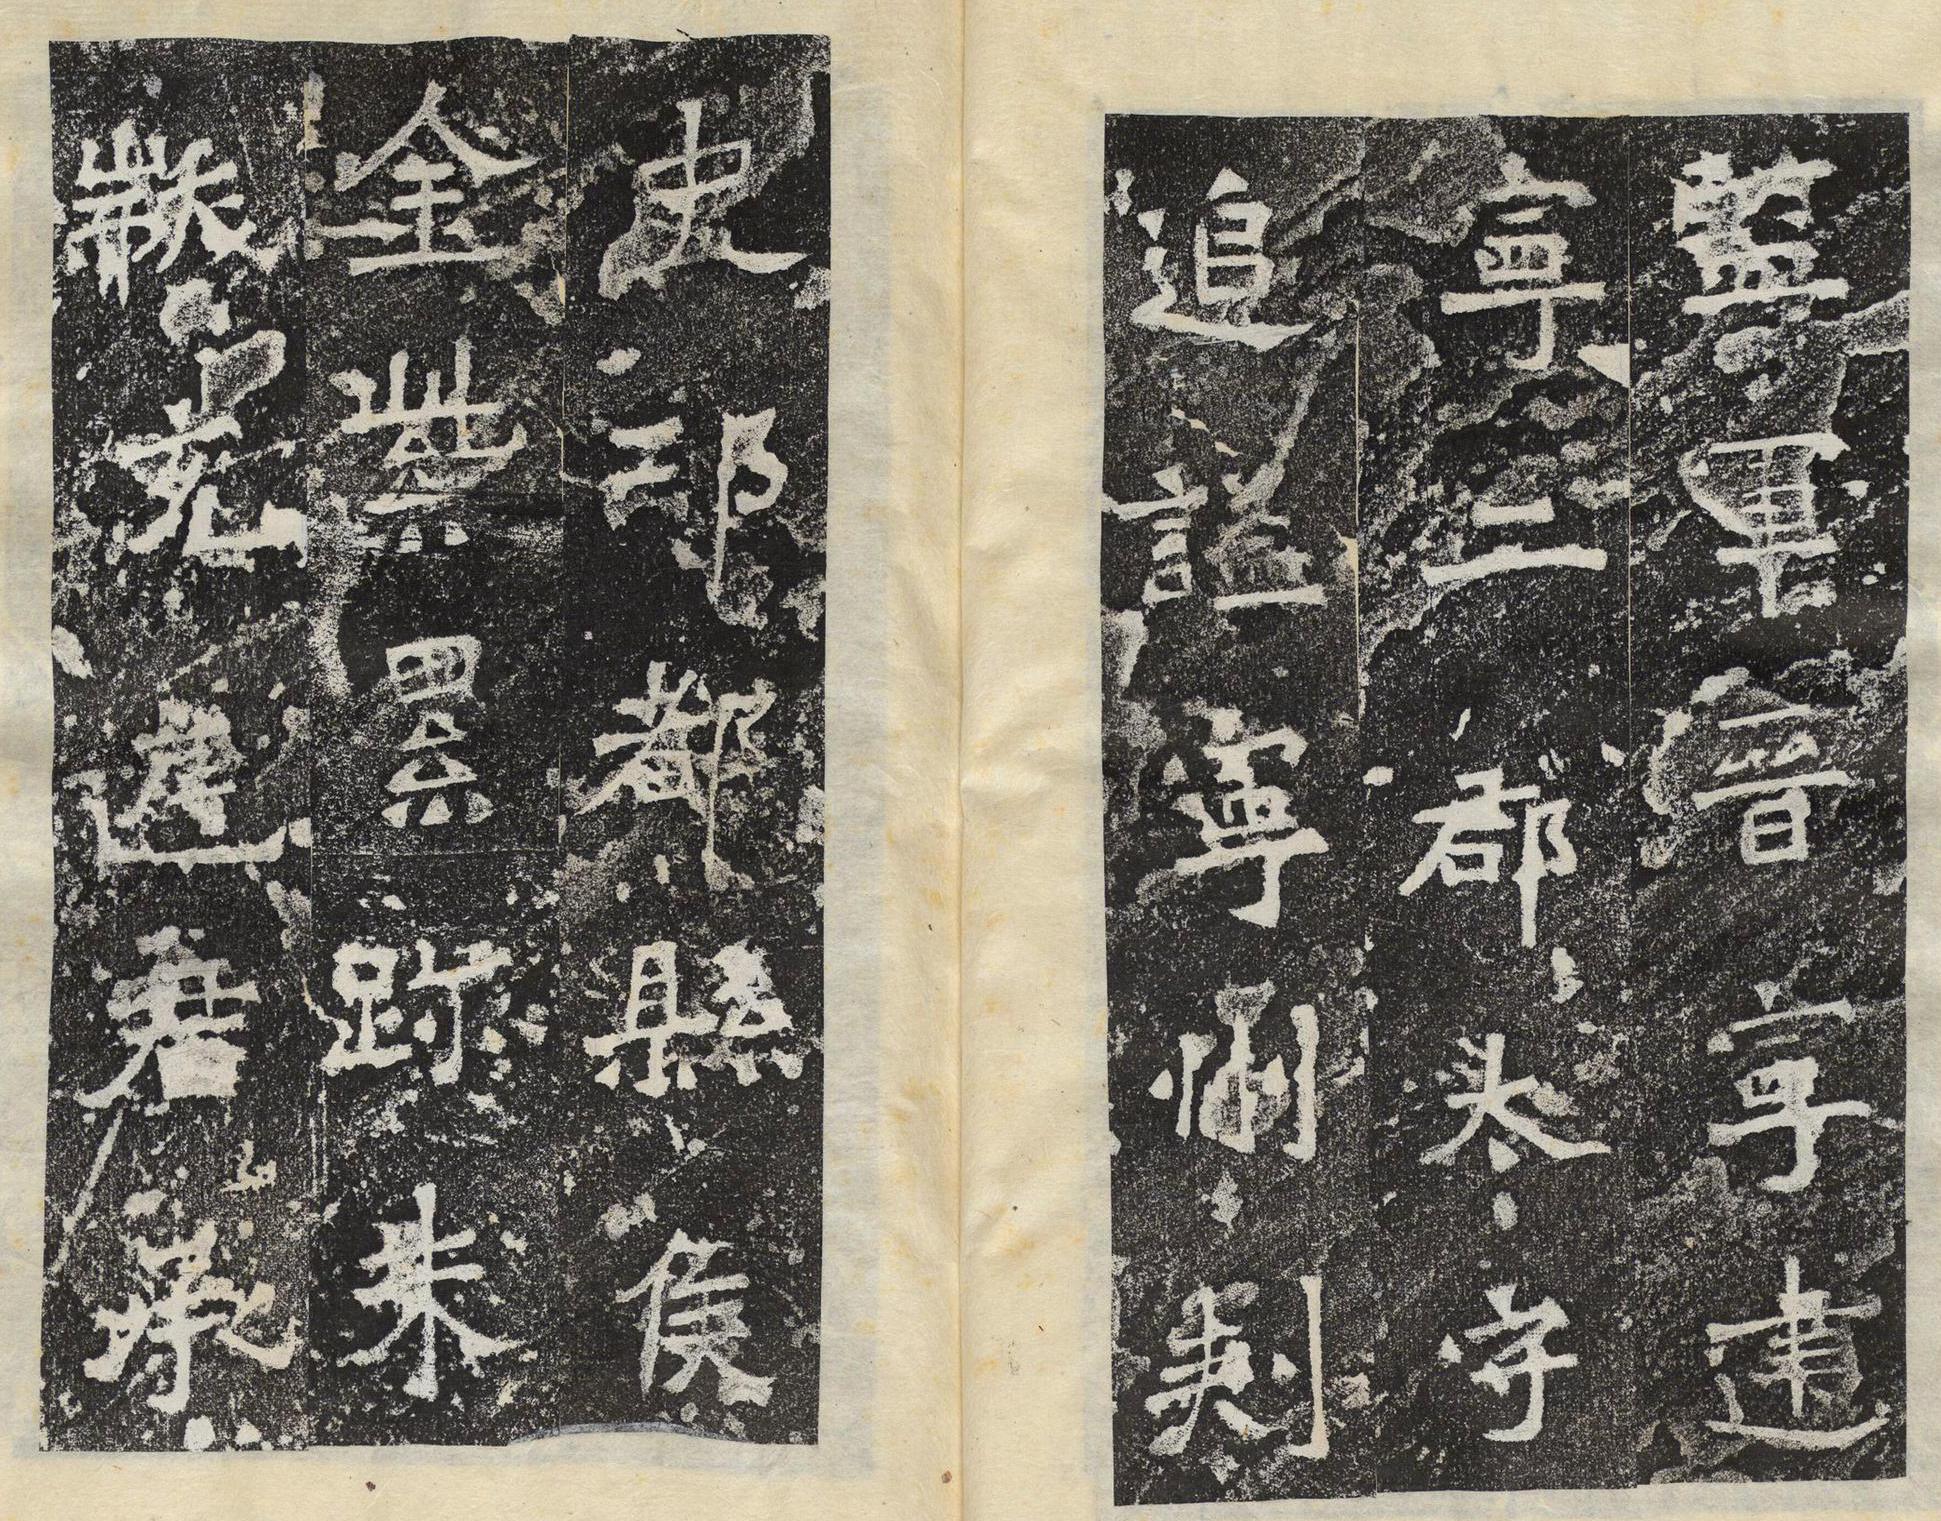 監軍晉寧建
寧二郡太守
追謚寧州刺
史邛都縣侯
金紫累跡朱
黻充庭君承